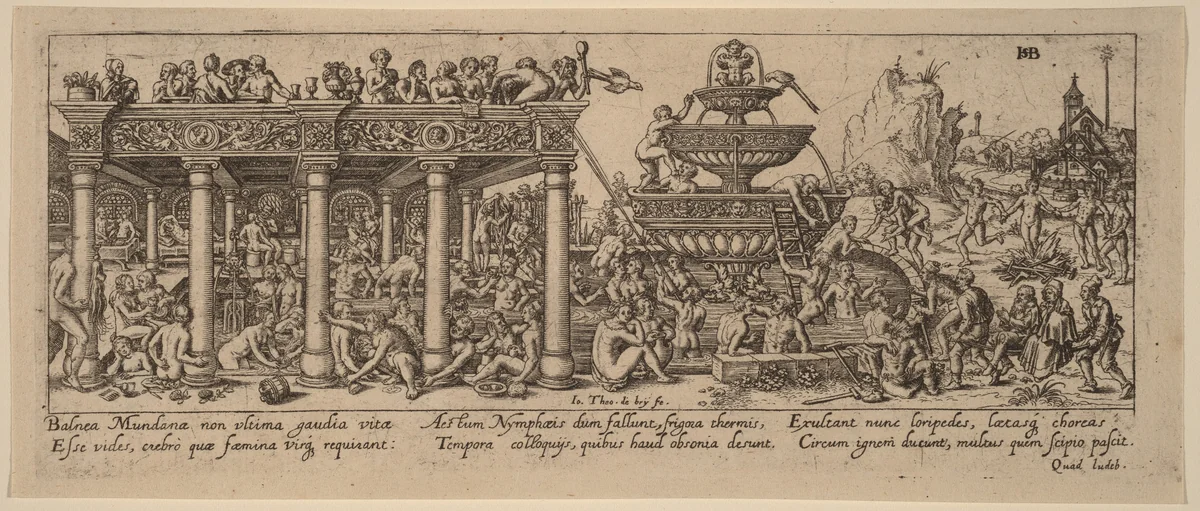 HSB
Io. Theo. de brÿ fe.
Balnea Mundanæ non vltima gaudia vitæ
Esse vides, crebrò quæ fæmina virq́; requirant:
Aestum Nymphæis dum fallunt, frigora thermis,
Tempora colloquijs, quibus haud obsonia desunt.
Exultant nunc loripedes, lætasq́; choreas
Circum ignem ducunt, multus quem scipio pascit.
Quad ludeb.